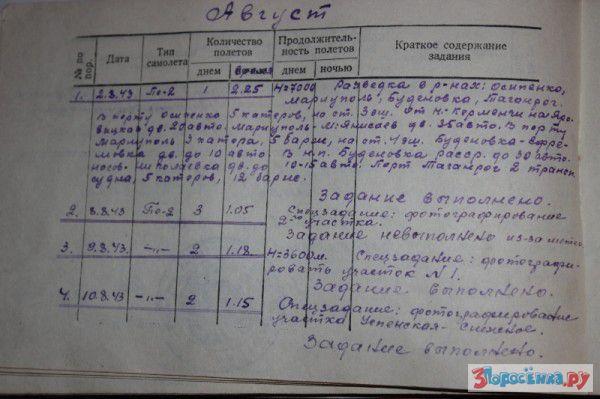 Август
№ по пор. Дата Тип самолета Количество полетов Продолжительность полетов Краткое содержание задания
днем днем ночью
1. 2.8.43 Пе-2 1 2.25 Н=7000 Разведка в р-нах: Осипенко,
Мариуполь, Буденовка, Таганрог.
В порту Осипенко 5 катеров, на ст. 3 эш. от Н-
дв. 20 авто. Мариуполь - дв. 35 авто. В порту
Мариуполь 3 катера, 5 барж, на ст. 4 эш. Буденовка-Ефре-
мовка дв. до 10 авто В н.п. Буденовка расср. до 30 авто.
Носово-Николаевка дв. до 10-15 авто. Порт Таганрог 2 трансп.
судна, 5 катеров, 12 барж.
Задание выполнено.
2. 8.8.43 Пе-2 3 1.05 Спецзадание: фотографирование
2-го участка.
Задание невыполнено из-за метео
3. 9.8.43 -„- 2 1.18 Н=3600м. Спецзадание: фотографи-
ровать участок №1.
Задание выполнено.
4. 10.8.43 -„- 2 1.15 Спецзадание: фотографирование
участка Успенская-Снежное.
Задание выполнено.
3Поросёнка.ру